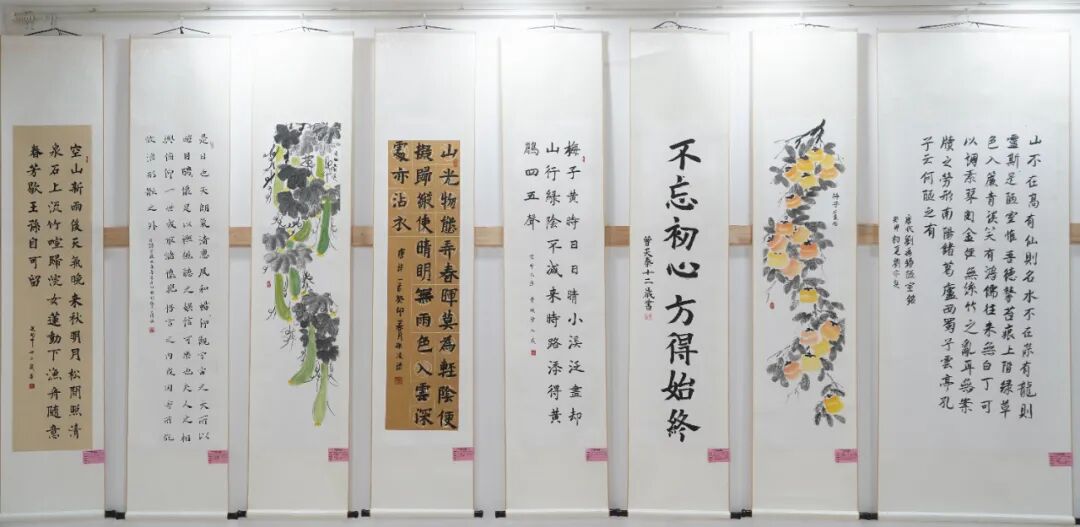 空山新雨後天氣晚来秋明月松間照清
泉石上流竹喧歸浣女蓮動下漁舟隨意
春芳歇王孫自可留
是日也天朗氣清惠風和暢仰觀宇宙之大所以
遊目騁懷足以極視聽之娛信可樂也夫人之相
與俯仰一世或取諸懷抱悟言之內或因寄所託
放浪形骸之外
山光物態弄春暉莫為輕陰便
擬歸縱使晴明無雨色入雲深
處亦沾衣
梅子黃時日日晴小溪泛盡却
山行綠陰不減来時路添得黃
鸝四五聲
不忘初心方得始終
十二歲書
山不在高有仙則名水不在深有龍則
靈斯是陋室惟吾德馨苔痕上階綠草
色入簾青談笑有鴻儒往来無白丁可
以調素琴閱金經無絲竹之亂耳無案
牘之勞形南陽諸葛廬西蜀子雲亭孔
子云何陋之有
唐代劉禹錫陋室銘
癸卯初夏